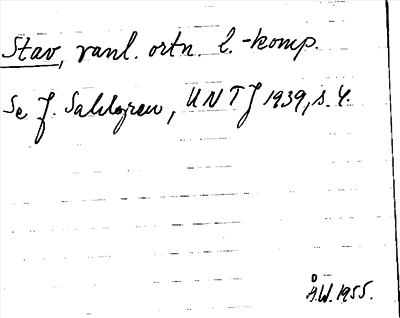 Stav, vanl. ortn. l.-komp.
Se J. Sahlgren, UNTJ 1939, s. 4.
Å.W. 1955.